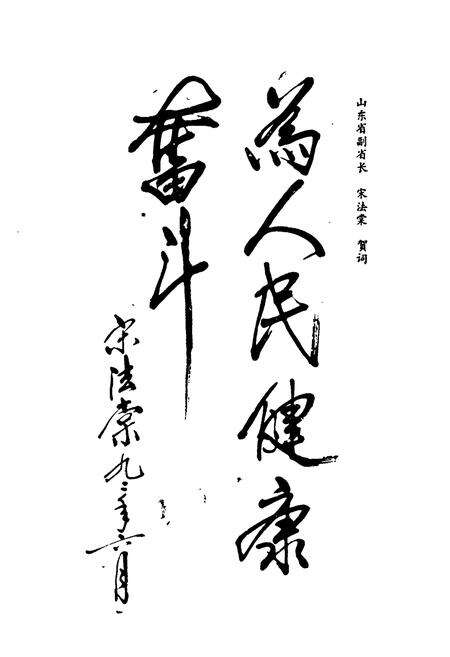 山东省副省长 宋法棠 贺词
为人民健康
奋斗
宋法棠九三年六月